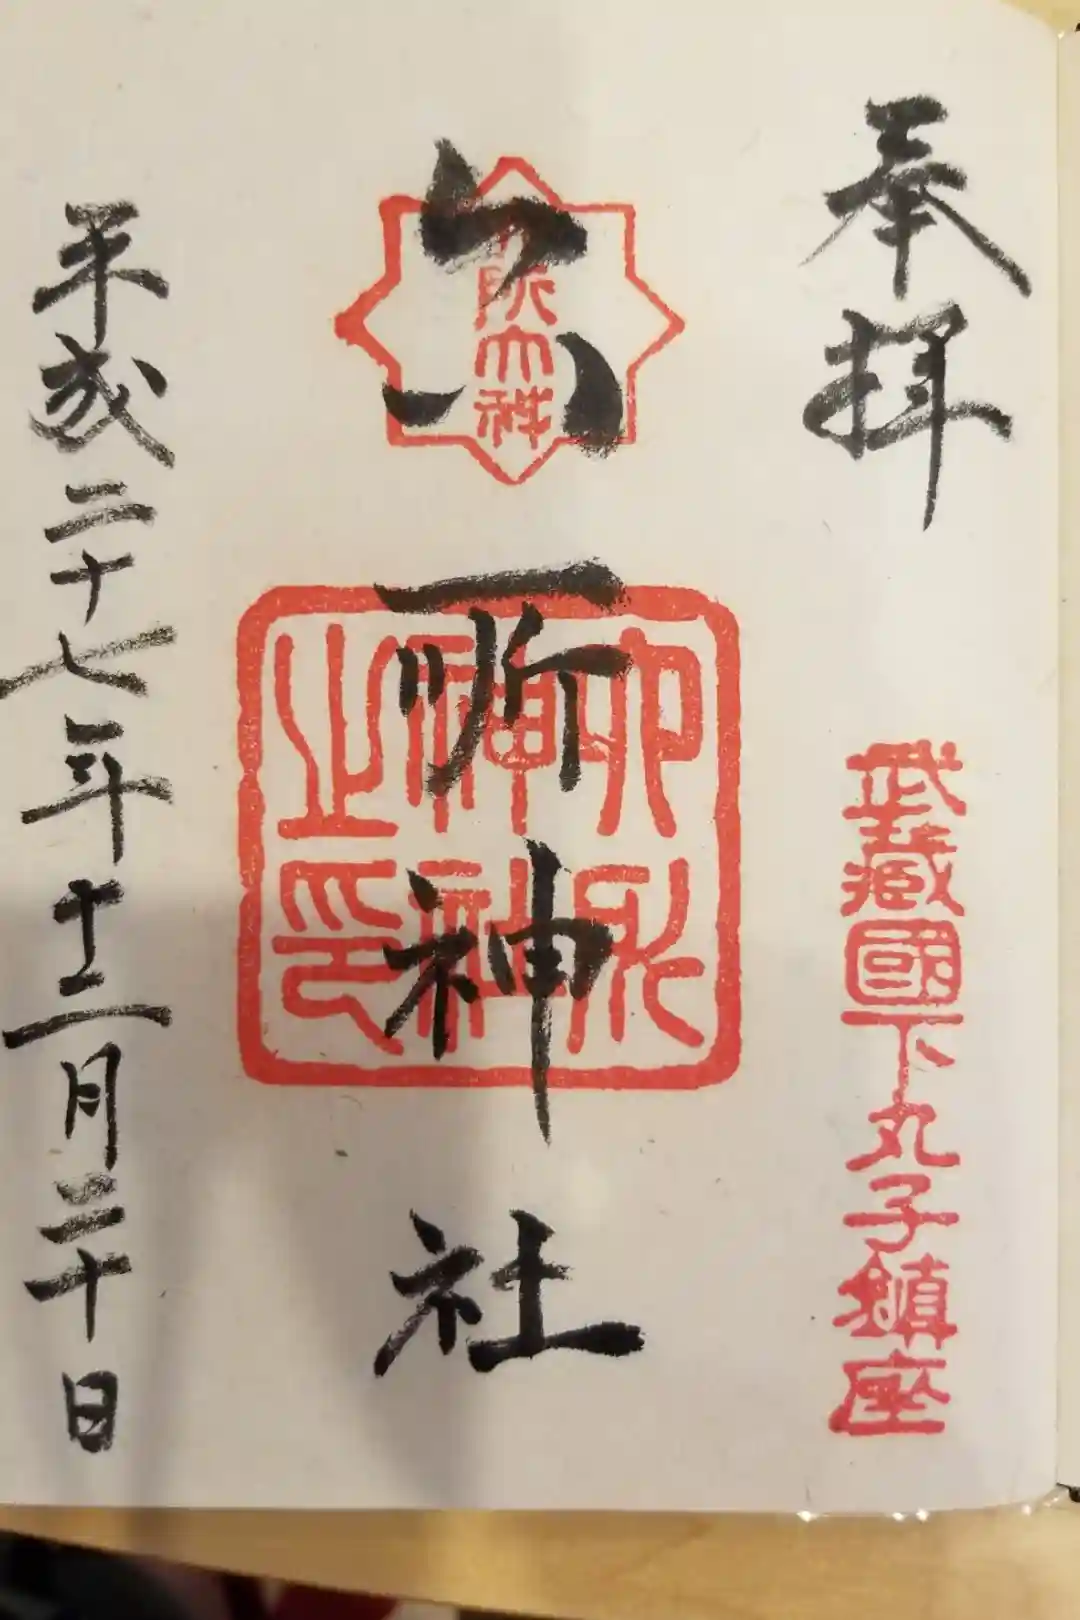 奉拝
武藏國下丸子鎮座
六所神社
六所神社之印
平成二十七年十二月二十日